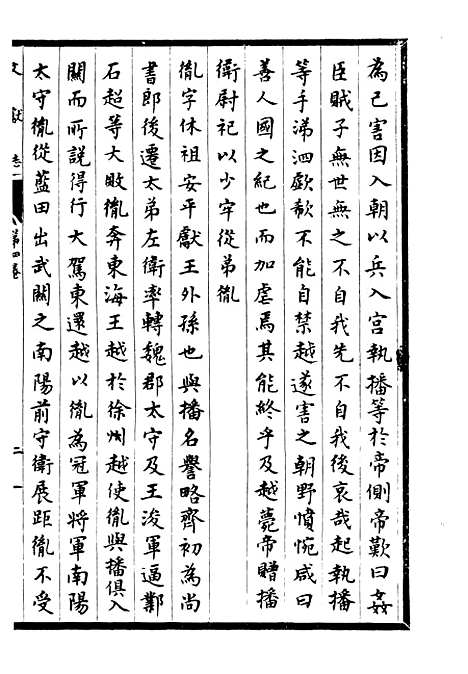 為己害因入朝以兵入宮執播等於帝側帝歎曰姦
臣賊子無世無之不自我先不自我後哀哉起執播
等手涕泗歔欷不能自禁越遂害之朝野憤惋咸曰
善人國之紀也而加虐焉其能終乎及越薨帝贈播
衛尉祀以少牢從弟㣧
㣧字休祖安平獻王外孫也與播名譽略齊初為尚
書郎後遷太弟左衛率轉魏郡太守及王浚軍逼鄴
石超等大敗㣧奔東海王越於徐州越使㣧與播俱入
關而所說得行大駕東還越以㣧為冠軍將軍南陽
太守㣧從藍田出武關之南陽前守衛展距㣧不受
文獻 卷一 第四卷 二一